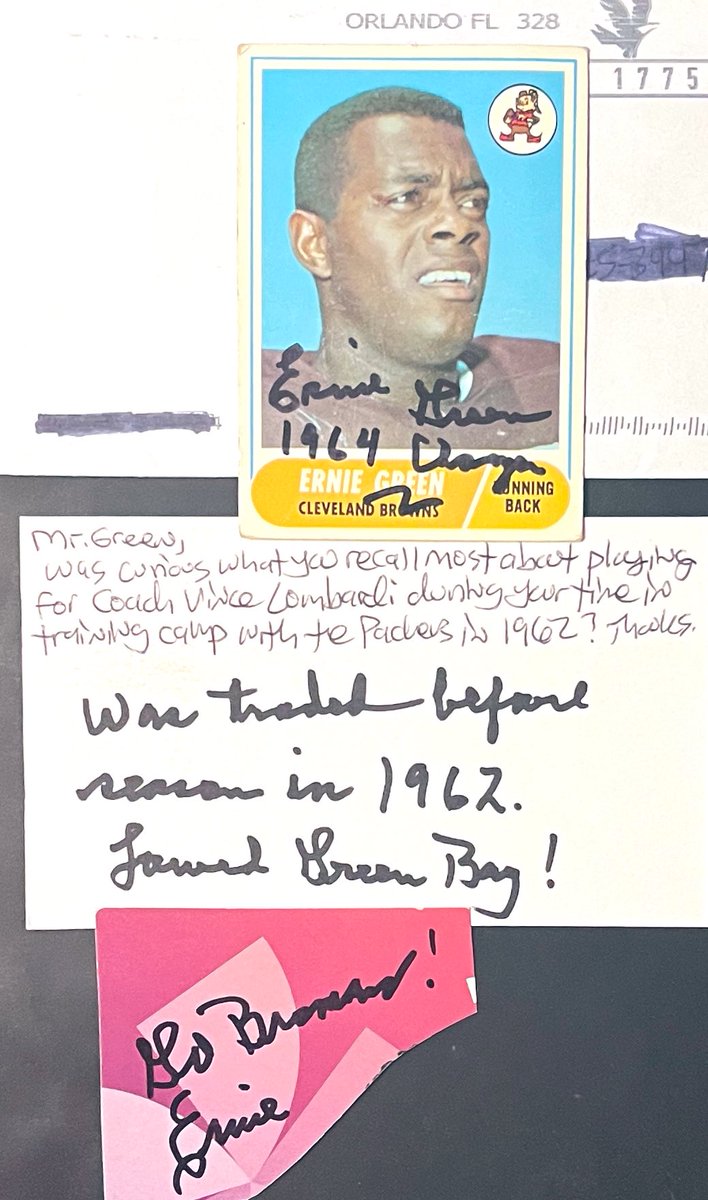 ORLANDO FL 328
1775
Ernie Green
1964 Champ
ERNIE GREEN
CLEVELAND BROWNS
RUNNING
BACK
Mr. Green,
was curious what you recall most about playing
for Coach Vince Lombardi during your time in
training camp with the Packers in 1962? Thanks.
Was traded before
season in 1962.
Loved Green Bay!
Go Browns!
Ernie